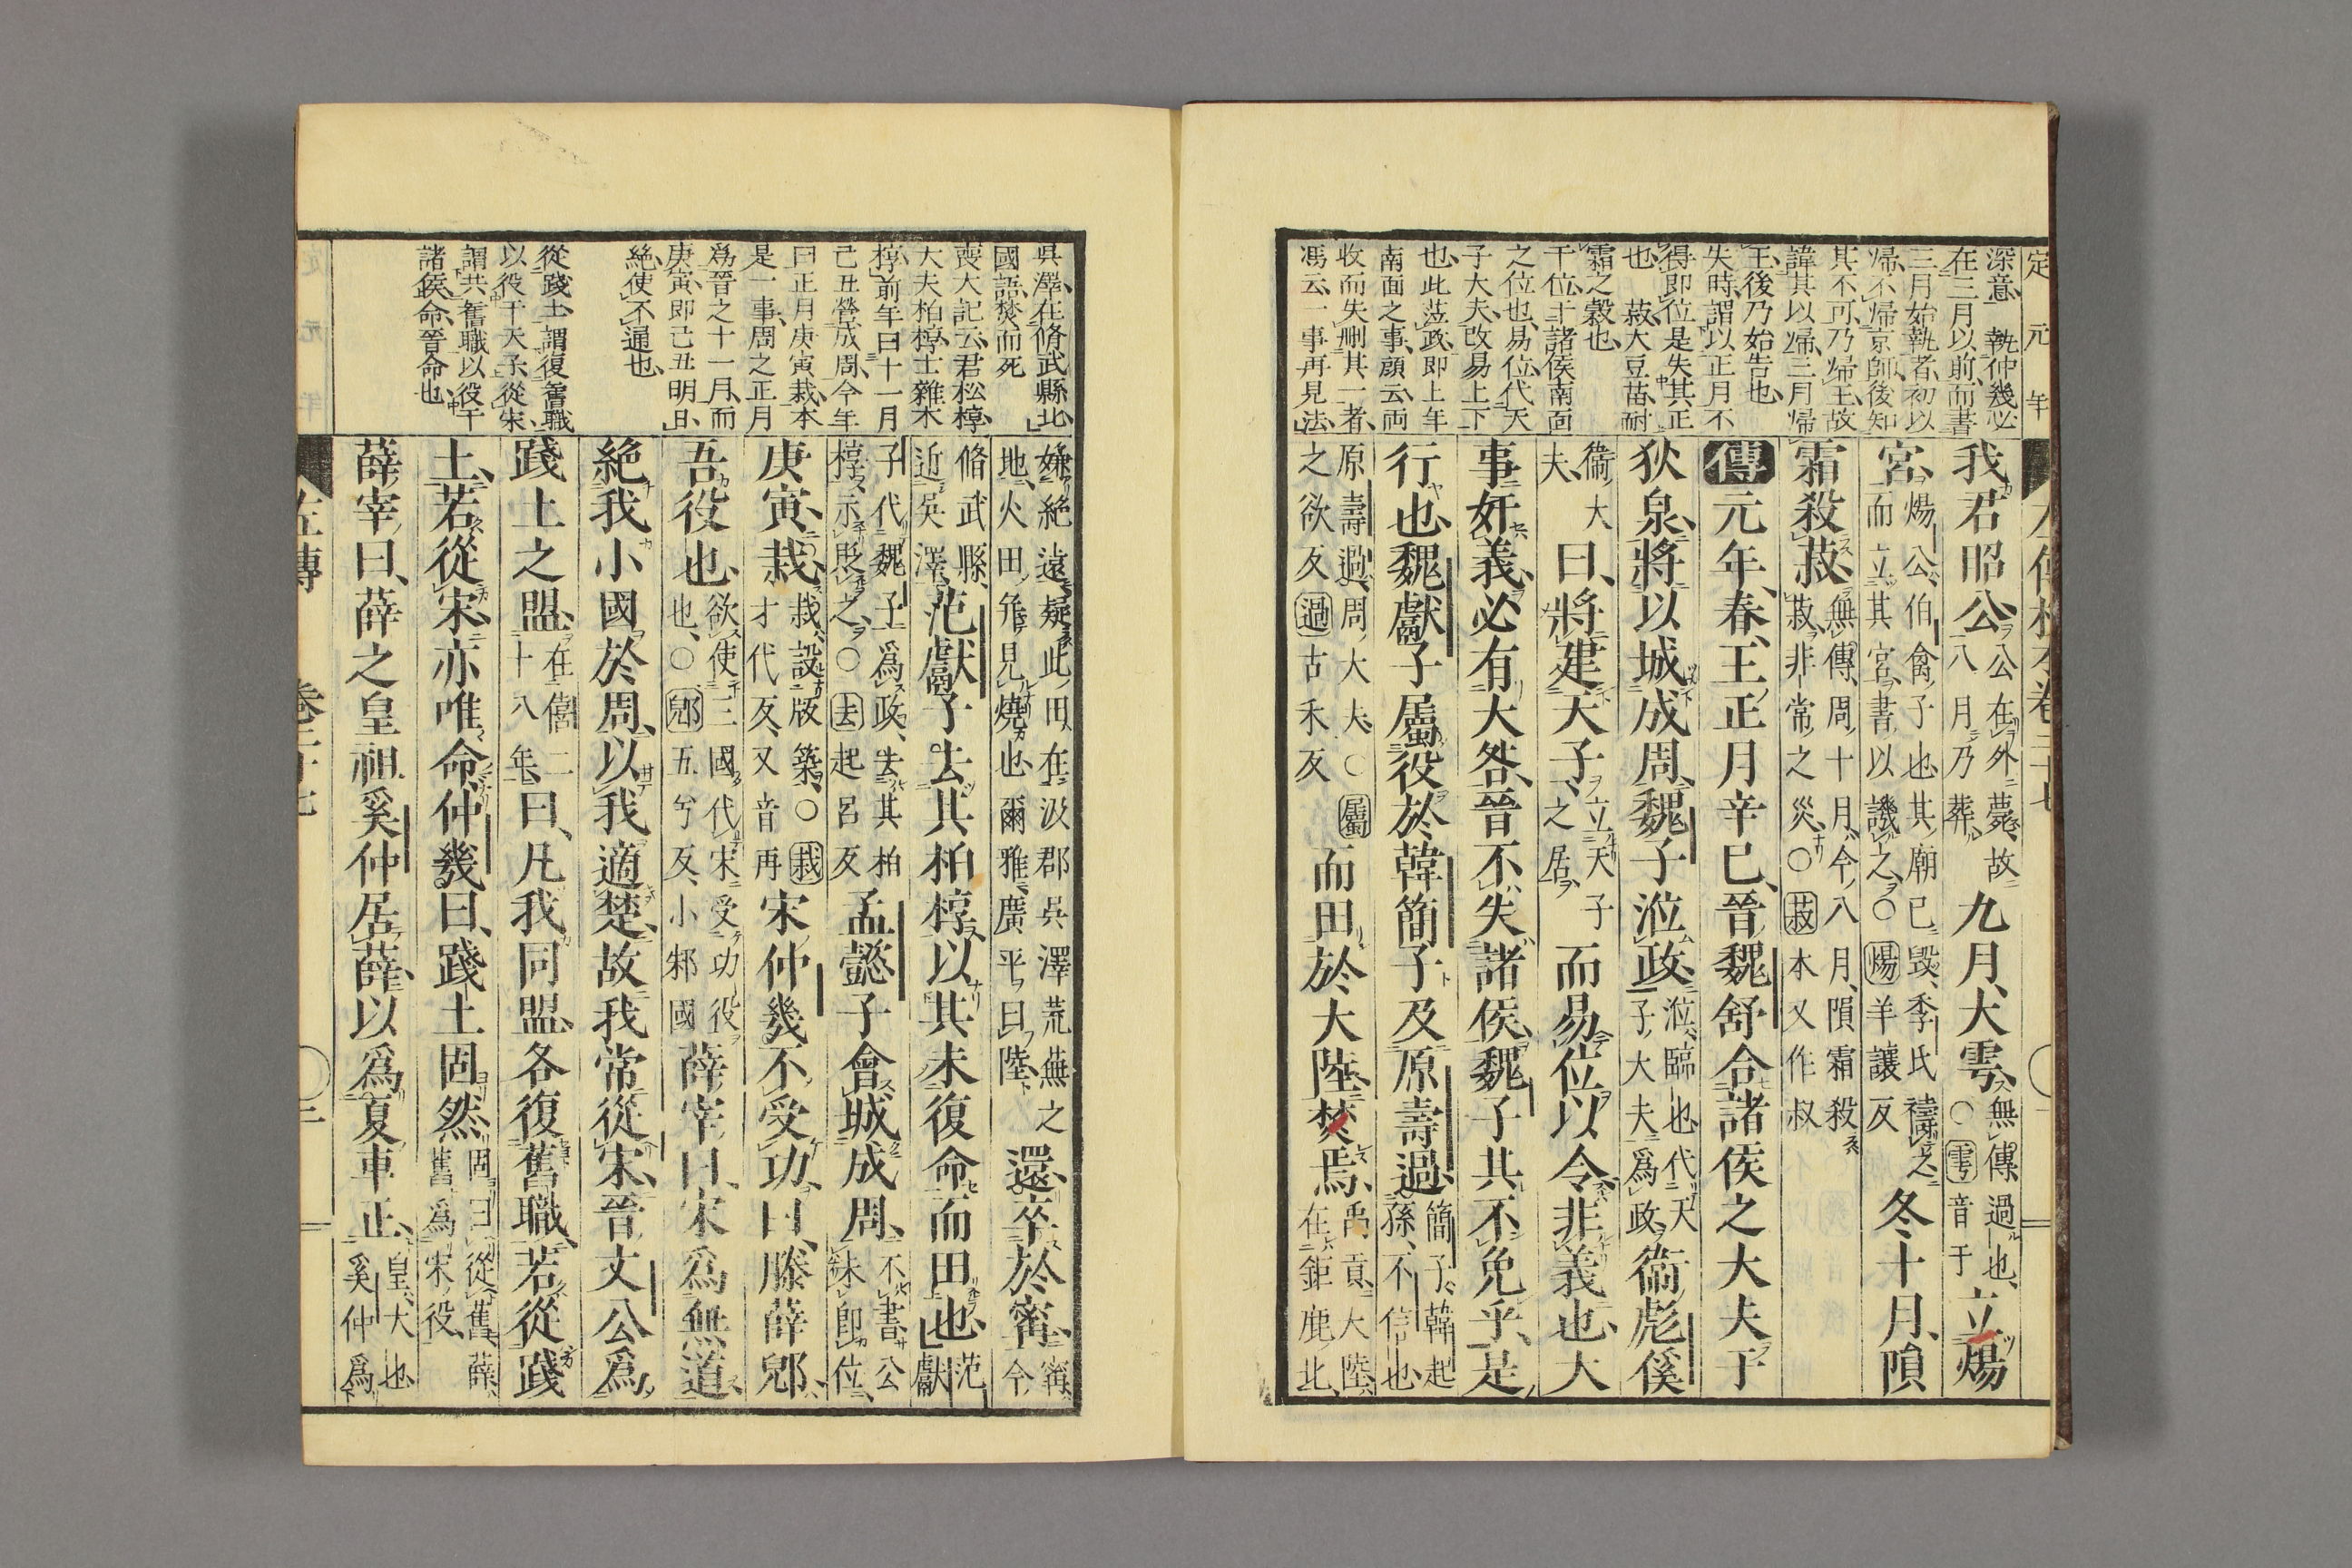 定元年
深意、執仲幾必
在三月以前、而書
三月始執者、初以
歸、不歸京師後知
其不可、乃歸王、故
諱其以歸、三月歸
王後乃始告也、
失時、謂以正月不
得即位、是失其正
也、 菽大豆苗、耐
霜之穀也、
干位、干諸侯南面
之位也、易位、代天
子大夫、改易上下
也、此蒞政、即上年
南面之事、顔云、両
收而失刪其一者、
馮云、一事再見法、
左傳校本卷二十七
我君昭公、公在外薨、故八月乃葬、九月、大雩、無傳過也、〇雩音于立煬
宮、煬公、伯禽子也、其廟已毀、季氏禱之而立其宮、書以譏之、〇煬羊讓反冬、十月、隕
霜殺菽、無傳、周十月、今八月、隕霜殺菽、非常之災、〇菽本又作叔
傳元年、春、王正月辛巳、晉魏舒合諸侯之大夫于
狄泉、將以城成周、魏子涖政、涖、臨也、代天子大夫爲政、衞彪傒
衞大夫、曰、將建天子、立天子之居、而易位以令、非義也、大
事奸義、必有大咎、晉不失諸侯、魏子其不免乎、是
行也、魏獻子屬役於韓簡子及原壽過、簡子、韓起孫、不信也、
原壽過、周大夫、〇屬之欲反過古禾反而田於大陸、焚焉、禹貢、大陸、在鉅鹿北、
吳澤、在脩武縣北、
國語、焚而死
喪大記云、君松椁、
大夫柏椁、士雜木
椁、前年曰、十一月
己丑、營成周、今年
曰正月庚寅栽、本
是一事、周之正月
爲晉之十一月、而
庚寅即己丑明日、
絶使不通也、
從踐土、謂復舊職
以役于天子、從宋
謂共舊職、以役于
諸侯、命、晉命也、
嫌絶遠、疑此田、在汲郡吳澤荒蕪之地、火田、竝見燒也、爾雅、廣平曰陸、還、卒於甯、甯、今
脩武縣、近吳澤、范獻子去其柏椁、以其未復命而田也、范獻
子代魏子爲政、去其柏椁、示貶之、〇去起呂反孟懿子會城成周、不書、公未即位、
庚寅、栽、栽、設版築、〇栽才代反、又音再宋仲幾不受功、曰、滕薛郳、
吾役也、欲使三國代宋受功役也、〇郳五兮反、小邾國薛宰曰、宋爲無道、
絶我小國於周、以我適楚、故我常從宋、晉文公爲
踐土之盟、在僖二十八年、曰、凡我同盟、各復舊職、若從踐
土、若從宋、亦唯命、仲幾曰、踐土固然、固曰從舊、薛舊爲宋役、
薛宰曰、薛之皇祖奚仲居薛、以爲夏車正、皇、大也、奚仲爲
左傳 卷二十七
二